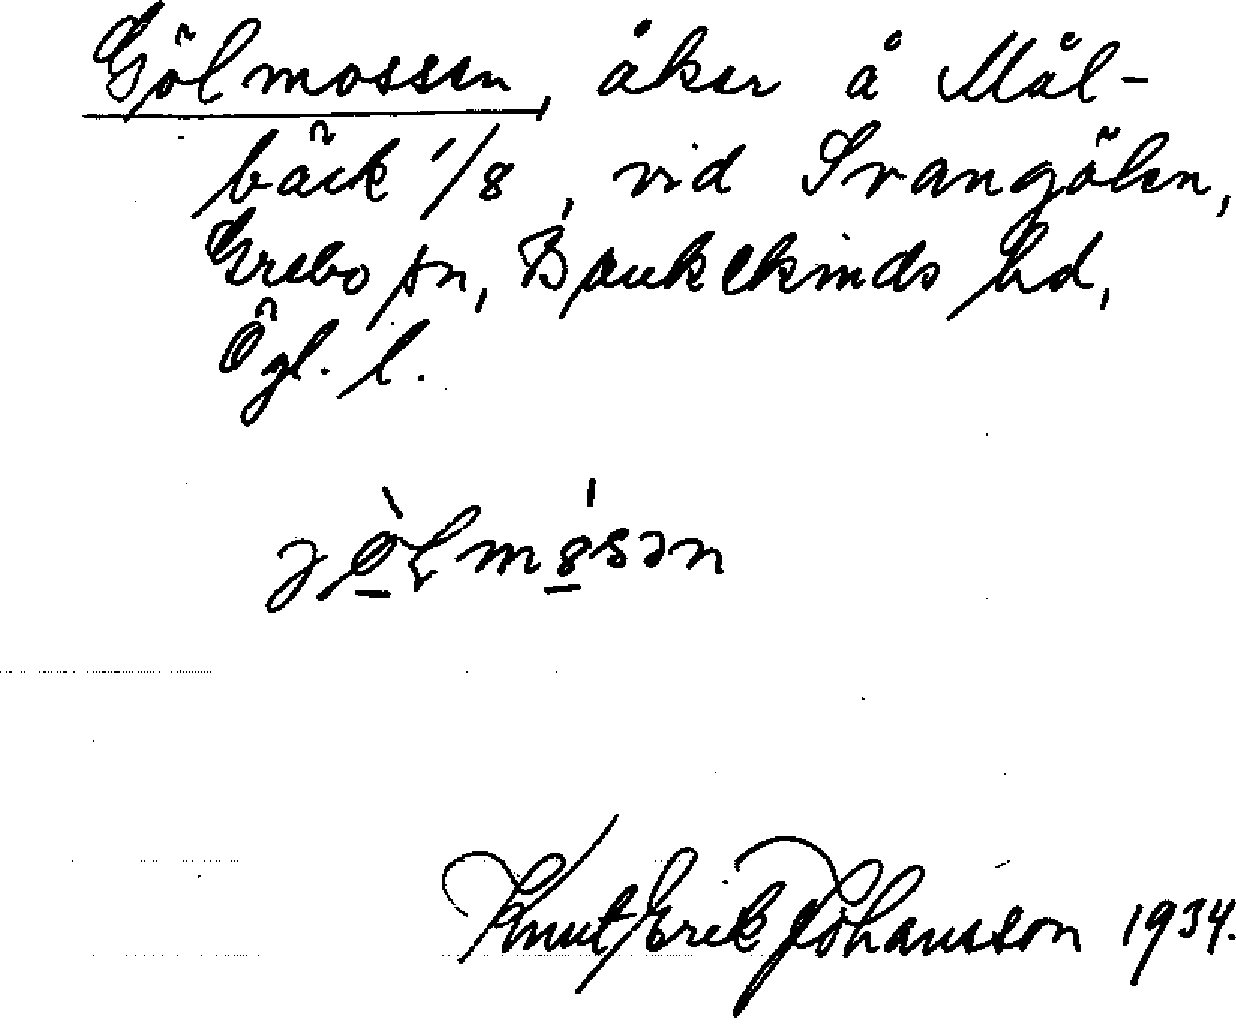 Gölmossen, åker å Mål-
bäck 1/8, vid Svangölen,
Grebo sn, Bankekinds hd,
Ögl. l.
Knut Erik Johansson 1934.